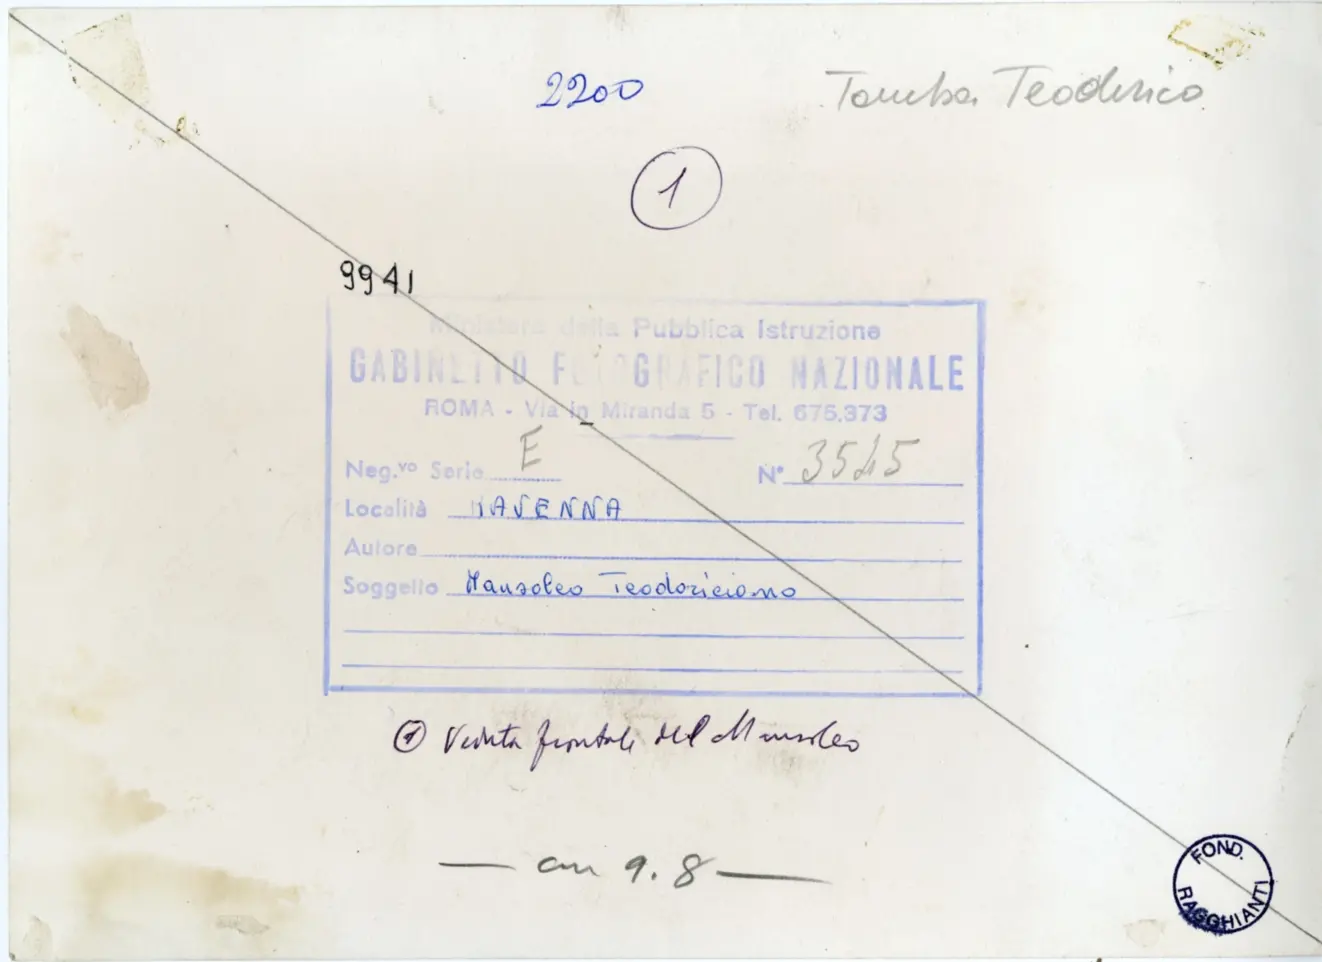 2200
Tomba Teoderico
1
9941
Ministero della Pubblica Istruzione
GABINETTO FOTOGRAFICO NAZIONALE
ROMA - Via in Miranda 5 - Tel. 675.373
Neg.vo Serie E N° 3545
Località RAVENNA
Autore
Soggetto Mausoleo Teodoriciano
① Veduta frontale del Mausoleo
— cm 9.8 —
FOND. RAGGHIANTI